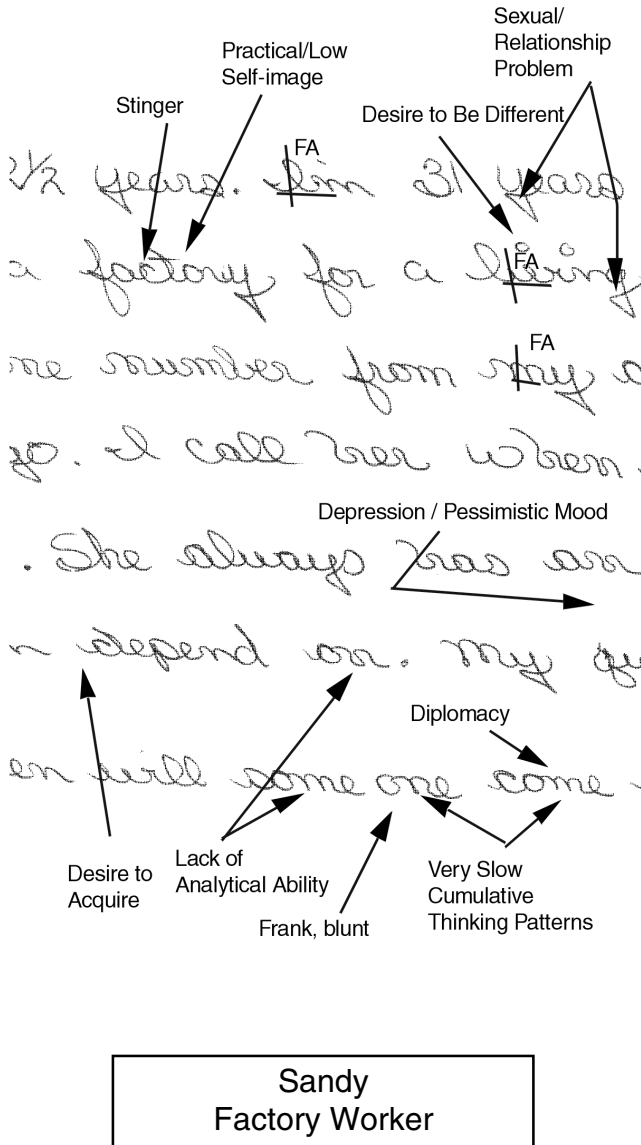 Sexual/
Relationship
Problem
Practical/Low
Self-image
Stinger
Desire to Be Different
FA
2 1/2 years. I'm 31 years
a factory for a living
FA
FA
me number from my
go. I call her when
Depression / Pessimistic Mood
. She always has an
depend on. My
Diplomacy
en will some one come
Desire to
Acquire
Lack of
Analytical Ability
Frank, blunt
Very Slow
Cumulative
Thinking Patterns
Sandy
Factory Worker